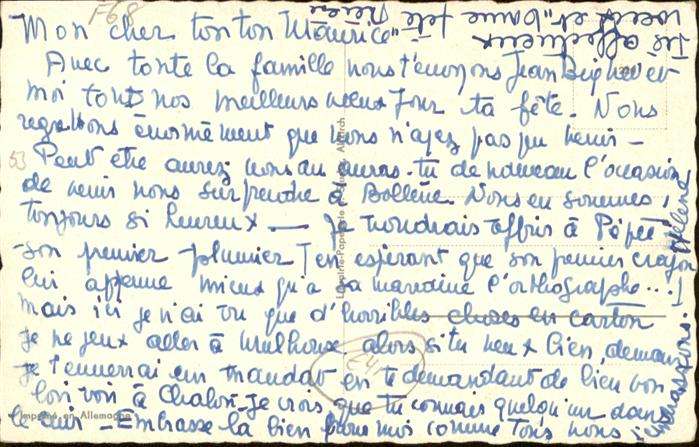 F68
Mon cher tonton Maurice,
Avec toute la famille nous t'envoyons Jean et
moi tous nos meilleurs vœux pour ta fête. Nous
regrettons énormément que vous n'ayez pas pu venir -
53
Peut être aurez vous ou auras-tu de nouveau l'occasion
de venir nous surprendre à Bollène. Nous en sommes
toujours si heureux — Je voudrais offrir à Pépée
son premier plumier en espérant que son premier crayon
lui apprenne mieux qu'à sa marraine l'orthographe...!
mais ici je n'ai vu que d'horribles choses en carton
je ne peux aller à Mulhouse. alors si tu veux bien, demain
je t'enverrai un mandat en te demandant de bien vouloir
voir à Chalon. Je crois que tu connais quelqu'un dans
le cuir - Embrasse la bien pour moi comme tous nous
t'embrassons.
Hélène
Très affectueux
vœux et bonne fête
241
Imprimé en Allemagne